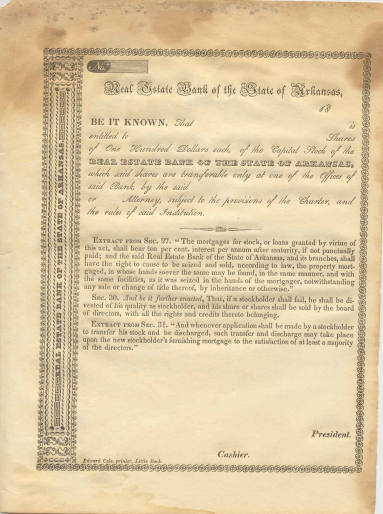 No.
Real Estate Bank of the State of Arkansas,
18
BE IT KNOWN, That is
entitled to Shares
of One Hundred Dollars each, of the Capital Stock of the
REAL ESTATE BANK OF THE STATE OF ARKANSAS,
which said shares are transferable only at one of the Offices of
said Bank, by the said
or Attorney, subject to the provisions of the Charter, and
the rules of said Institution.
EXTRACT FROM SEC. 27. "The mortgages for stock, or loans granted by virtue of
this act, shall bear ten per cent. interest per annum after maturity, if not punctually
paid; and the said Real Estate Bank of the State of Arkansas, and its branches, shall
have the right to cause to be seized and sold, according to law, the property mort-
gaged, in whose hands soever the same may be found, in the same manner, and with
the same facilities, as it was seized in the hands of the mortgager, notwithstanding
any sale or change of title thereof, by inheritance or otherwise."
SEC. 29. And be it further enacted, That, if a stockholder shall fail, he shall be di-
vested of his quality as stockholder, and his share or shares shall be sold by the board
of directors, with all the rights and credits thereto belonging.
EXTRACT FROM SEC. 31. "And whenever application shall be made by a stockholder
to transfer his stock and be discharged, such transfer and discharge may take place
upon the new stockholder's furnishing mortgage to the satisfaction of at least a majority
of the directors."
President.
Cashier.
Edward Cole, printer, Little Rock.
REAL ESTATE BANK OF THE STATE OF ARKANSAS.